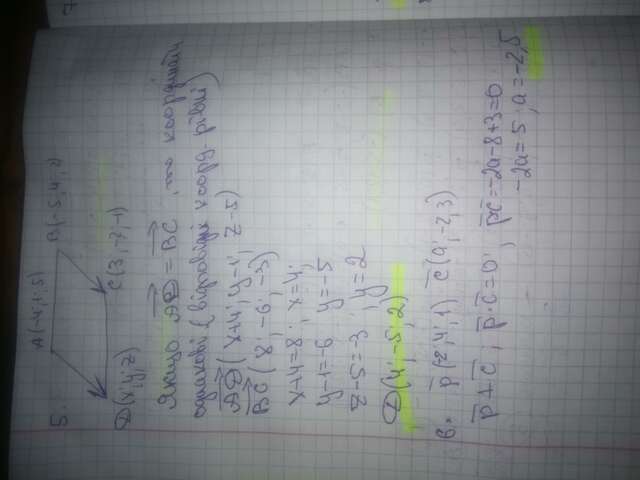 5.
A(-4; 1; 5) B(-5; -1; 2)
D(x; y; z) C(3; -7; -1)
Якщо AD = BC, то координати
однакові (відповідні коорд. рівні)
AD(x+4; y-1; z-5)
BC(8; -6; -3)
x+4=8; x=4;
y-1=-6 y=-5
z-5=-3; y=2
D(4; -5; 2)
6. p(-2; 4; 1) c(a; -2; 3)
p ⊥ c, p·c=0; pc=-2a-8+3=0
-2a=5; a=-2,5